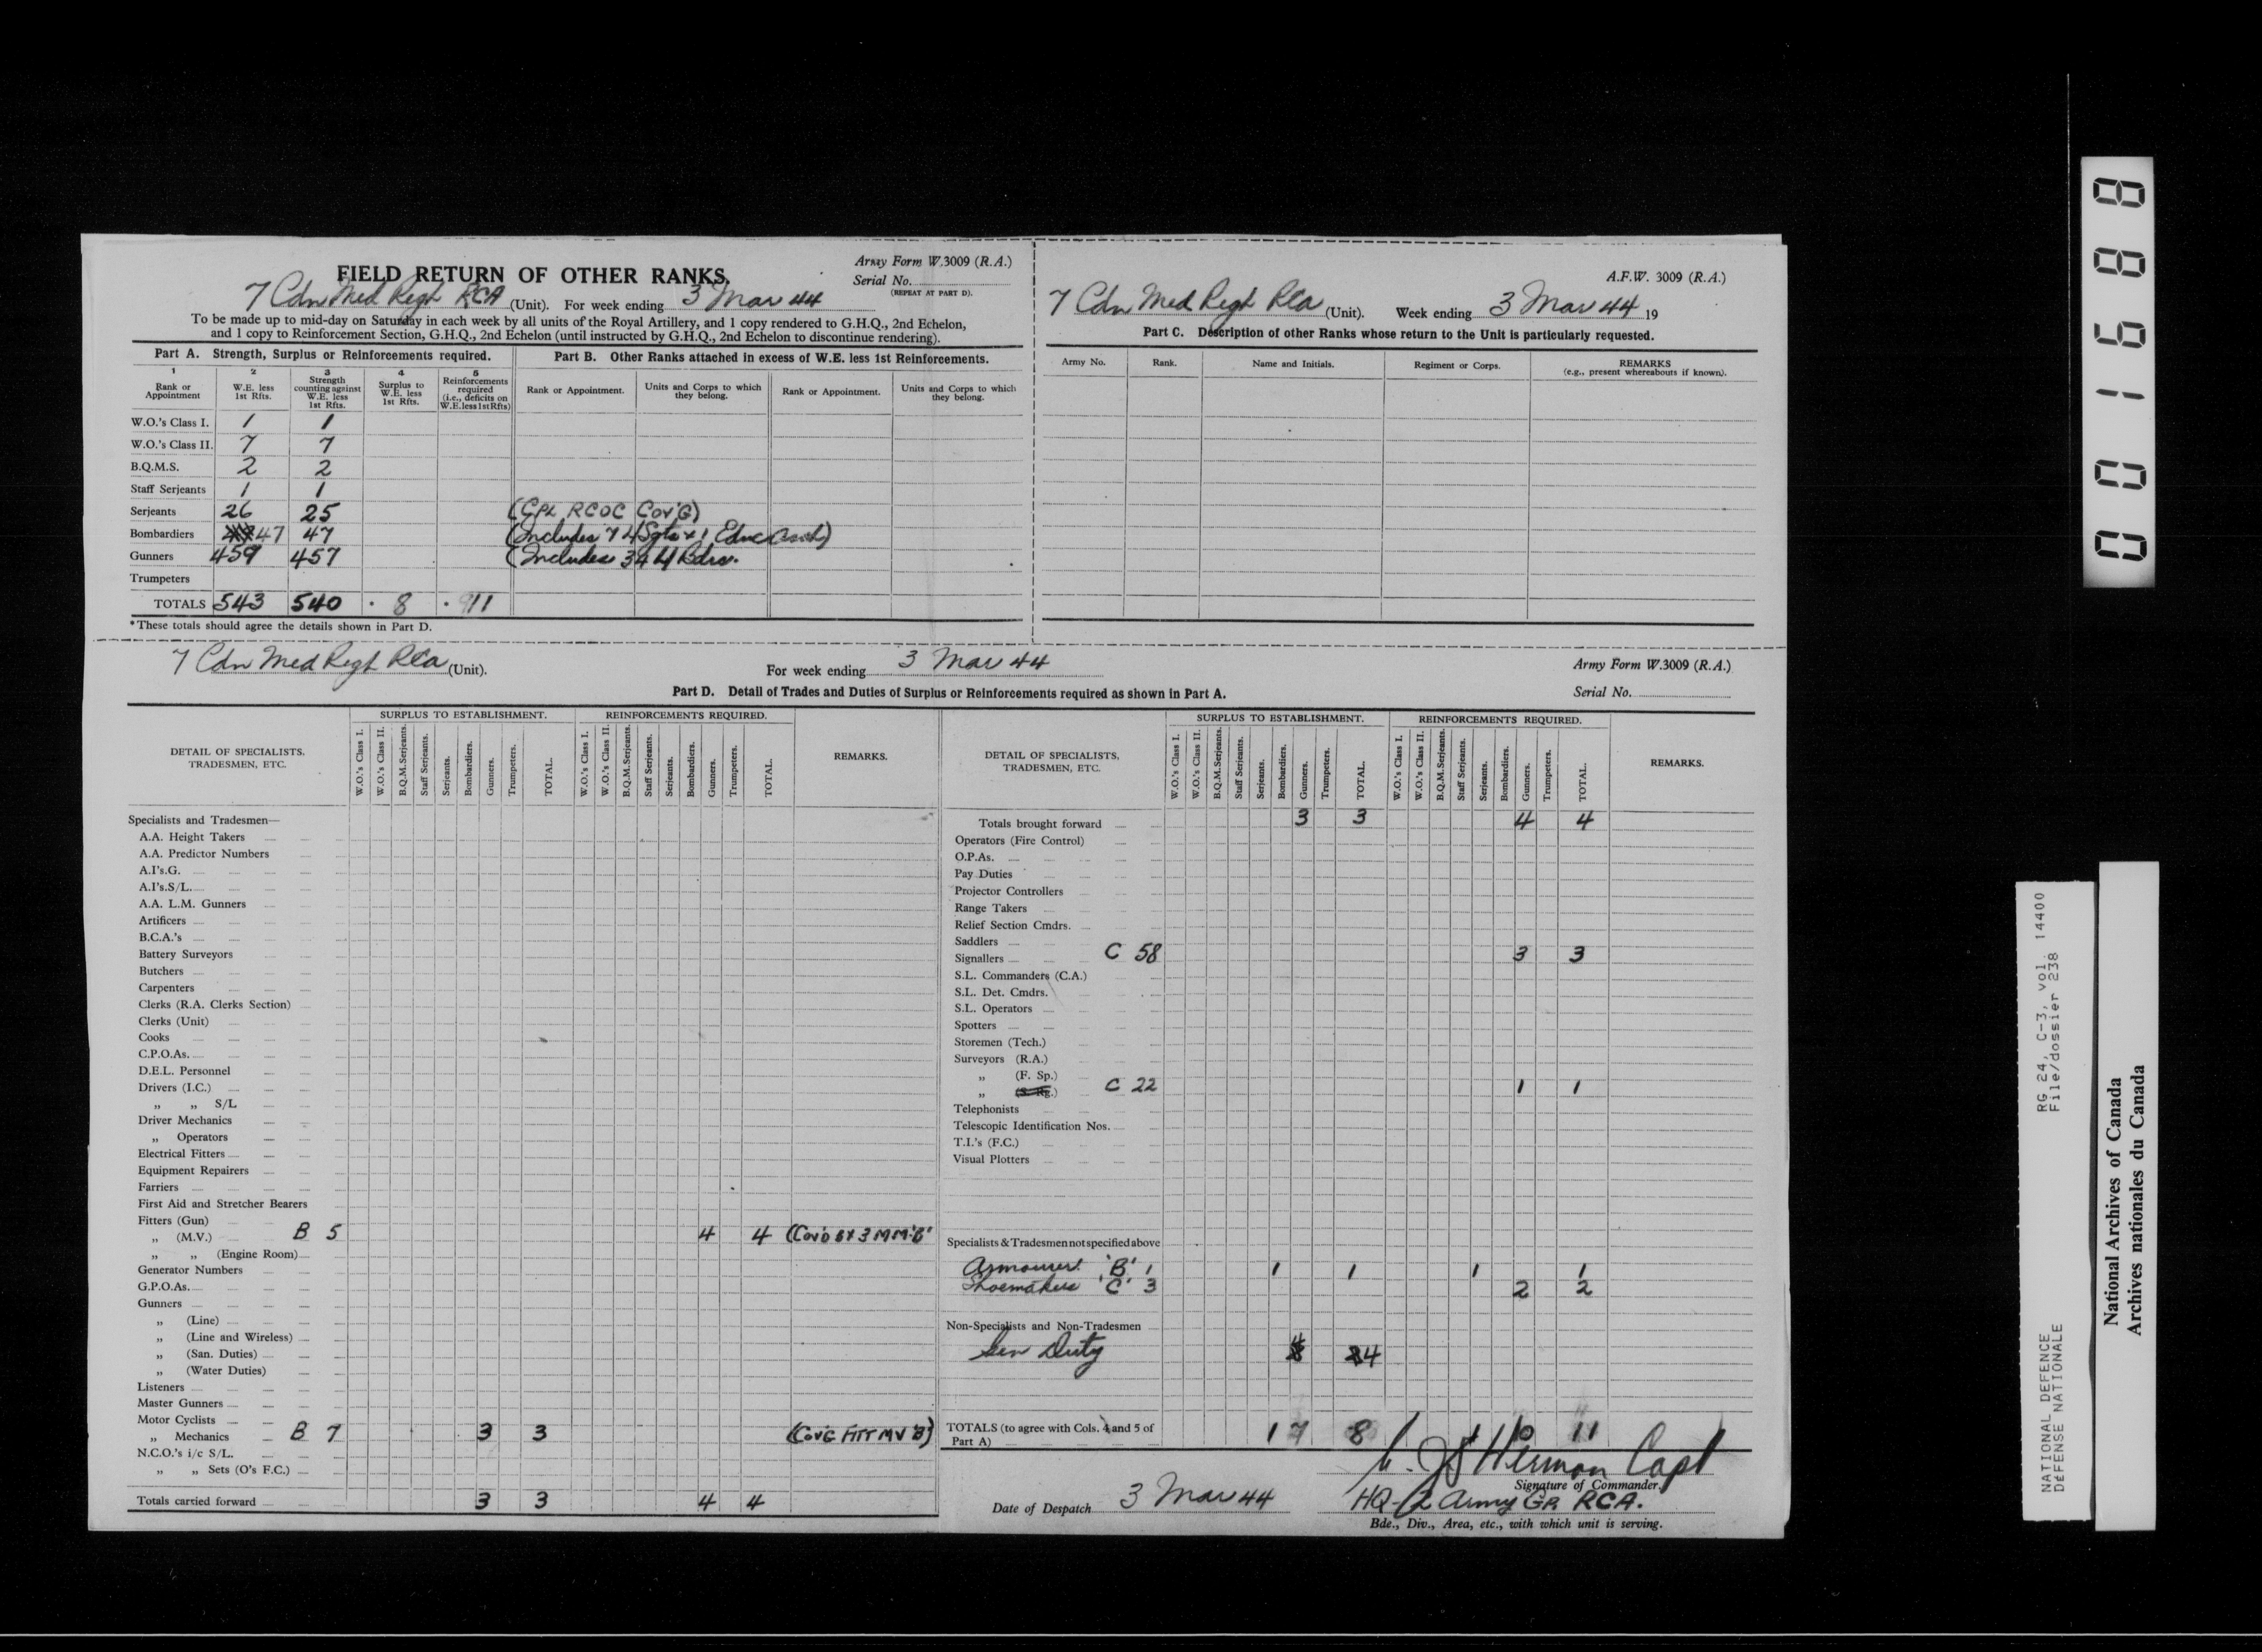 FIELD RETURN OF OTHER RANKS.
Army Form W.3009 (R.A.)
Serial No.
(REPEAT AT PART D).
7 Cdn Med Regt RCA (Unit). For week ending 3 Mar 44
To be made up to mid-day on Saturday in each week by all units of the Royal Artillery, and 1 copy rendered to G.H.Q., 2nd Echelon,
and 1 copy to Reinforcement Section, G.H.Q., 2nd Echelon (until instructed by G.H.Q., 2nd Echelon to discontinue rendering).
Part A. Strength, Surplus or Reinforcements required.
1 Rank or Appointment
2 W.E. less 1st Rfts.
3 Strength counting against W.E. less 1st Rfts.
4 Surplus to W.E. less 1st Rfts.
5 Reinforcements required (i.e., deficits on W.E. less 1st Rfts)
W.O.'s Class I. 1 1
W.O.'s Class II. 7 7
B.Q.M.S. 2 2
Staff Serjeants 1 1
Serjeants 26 25
Bombardiers 47 47
Gunners 459 457
Trumpeters
TOTALS 543 540 8 11
*These totals should agree the details shown in Part D.
Part B. Other Ranks attached in excess of W.E. less 1st Reinforcements.
Rank or Appointment. Units and Corps to which they belong. Rank or Appointment. Units and Corps to which they belong.
(CPL RCOC Cov'G)
(Includes 7 L/Sgts + 1 Educ Asst)
(Includes 34 L/Bdrs.
A.F.W. 3009 (R.A.)
7 Cdn Med Regt RCA (Unit). Week ending 3 Mar 44 19
Part C. Description of other Ranks whose return to the Unit is particularly requested.
Army No. Rank. Name and Initials. Regiment or Corps. REMARKS
(e.g., present whereabouts if known).
7 Cdn Med Regt RCA (Unit). For week ending 3 Mar 44 Army Form W.3009 (R.A.)
Part D. Detail of Trades and Duties of Surplus or Reinforcements required as shown in Part A. Serial No.
DETAIL OF SPECIALISTS, TRADESMEN, ETC.
SURPLUS TO ESTABLISHMENT.
W.O.'s Class I. W.O.'s Class II. B.Q.M.Serjeants. Staff Serjeants. Serjeants. Bombardiers. Gunners. Trumpeters. TOTAL.
REINFORCEMENTS REQUIRED.
W.O.'s Class I. W.O.'s Class II. B.Q.M.Serjeants. Staff Serjeants. Serjeants. Bombardiers. Gunners. Trumpeters. TOTAL.
REMARKS.
Specialists and Tradesmen—
A.A. Height Takers
A.A. Predictor Numbers
A.I's.G.
A.I's.S/L.
A.A. L.M. Gunners
Artificers
B.C.A.'s
Battery Surveyors
Butchers
Carpenters
Clerks (R.A. Clerks Section)
Clerks (Unit)
Cooks
C.P.O.As.
D.E.L. Personnel
Drivers (I.C.)
„ „ S/L
Driver Mechanics
„ Operators
Electrical Fitters
Equipment Repairers
Farriers
First Aid and Stretcher Bearers
Fitters (Gun)
„ (M.V.) B 5 4 4 (Cov'd by 3 MM 'B'
„ „ (Engine Room)
Generator Numbers
G.P.O.As.
Gunners
„ (Line)
„ (Line and Wireless)
„ (San. Duties)
„ (Water Duties)
Listeners
Master Gunners
Motor Cyclists
„ Mechanics B 7 3 3 (Cov'G FITT MV 'B')
N.C.O.'s i/c S/L.
„ „ Sets (O's F.C.)
Totals carried forward 3 3 4 4
DETAIL OF SPECIALISTS, TRADESMEN, ETC.
SURPLUS TO ESTABLISHMENT.
W.O.'s Class I. W.O.'s Class II. B.Q.M.Serjeants. Staff Serjeants. Serjeants. Bombardiers. Gunners. Trumpeters. TOTAL.
REINFORCEMENTS REQUIRED.
W.O.'s Class I. W.O.'s Class II. B.Q.M.Serjeants. Staff Serjeants. Serjeants. Bombardiers. Gunners. Trumpeters. TOTAL.
REMARKS.
Totals brought forward 3 3 4 4
Operators (Fire Control)
O.P.As.
Pay Duties
Projector Controllers
Range Takers
Relief Section Cmdrs.
Saddlers
Signallers C 58 3 3
S.L. Commanders (C.A.)
S.L. Det. Cmdrs.
S.L. Operators
Spotters
Storemen (Tech.)
Surveyors (R.A.)
„ (F. Sp.)
„ C 22 1 1
Telephonists
Telescopic Identification Nos.
T.I.'s (F.C.)
Visual Plotters
Specialists & Tradesmen not specified above
Armourer 'B' 1 1 1 1 1
Shoemakers 'C' 3 2 2
Non-Specialists and Non-Tradesmen
Gen Duty 4 4
TOTALS (to agree with Cols. 4 and 5 of Part A) 1 7 8 1 10 11
Herman Capt
Signature of Commander.
Date of Despatch 3 Mar 44
HQ 2 Army GP RCA.
Bde., Div., Area, etc., with which unit is serving.
001688
RG 24, C-3, vol. 14400
File/dossier 238
NATIONAL DEFENCE
DÉFENSE NATIONALE
National Archives of Canada
Archives nationales du Canada